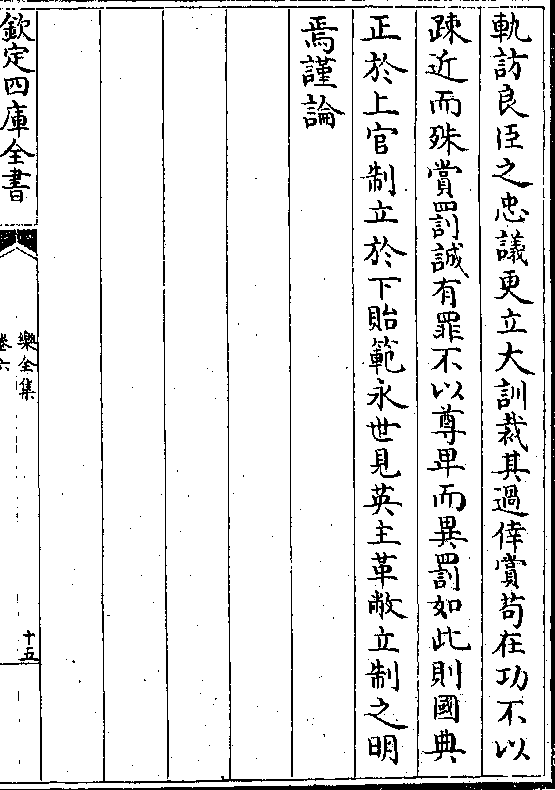 軌訪良臣之忠議更立大訓裁其過倖賞苟在功不以
踈近而殊賞罰誠有罪不以尊卑而異罰如此則國典
正於上官制立於下貽範永世見英主革敝立制之明
焉謹論
欽定四庫全書
樂全集
卷六
十五